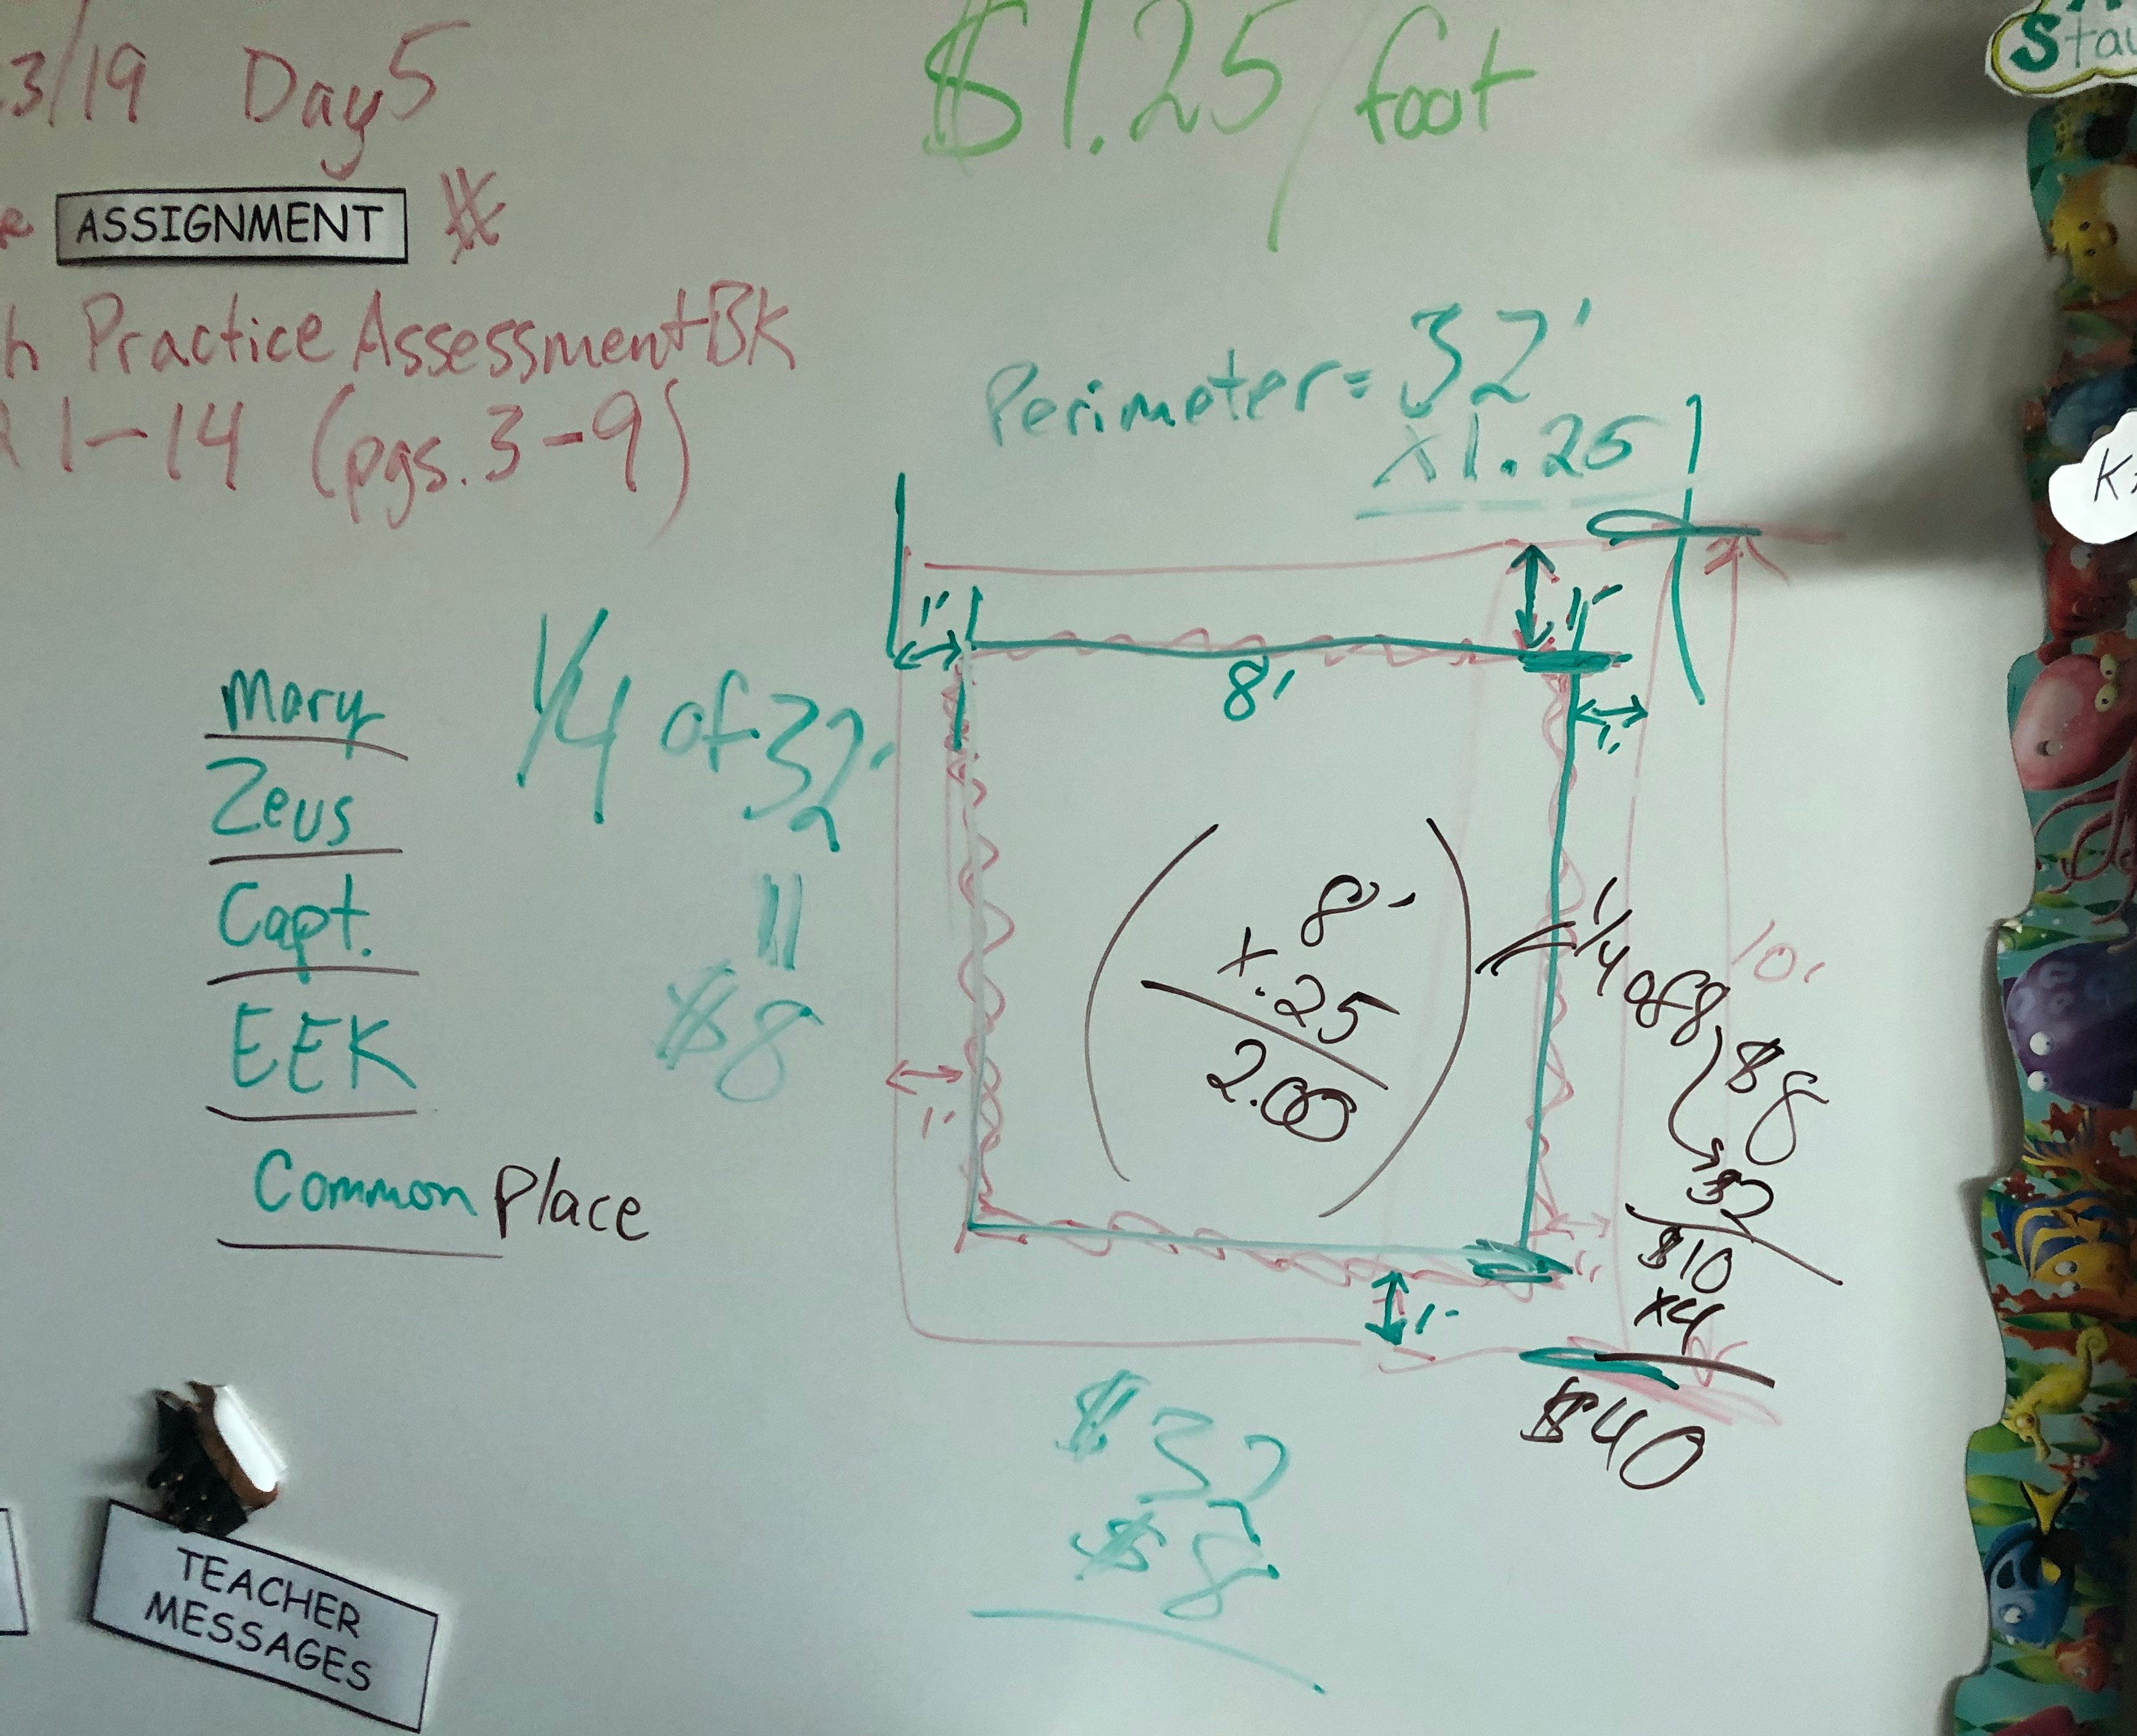 3/19 Day 5
ASSIGNMENT
h Practice Assessment BK
1-14 (pgs. 3-9)
$1.25/foot
Perimeter = 32'
x1.25
1'
1'
8'
1'
Mary
Zeus
Capt.
EEK
Common Place
1/4 of 32
$8
8'
x.25
2.00
1/4 of 8
10'
$8
$2
$10
x4
$40
1'
1'
$32
$8
TEACHER
MESSAGES
Sta
K